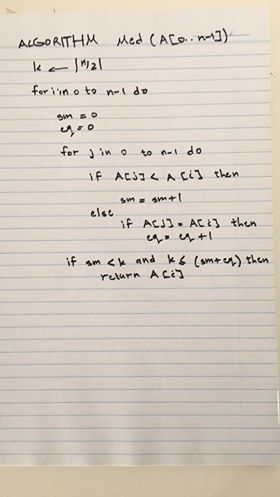 ALGORITHM Med (A[0..n-1])
k ← |n/2|
for i in 0 to n-1 do
sm = 0
eq = 0
for j in 0 to n-1 do
if A[j] < A[i] then
sm = sm+1
else
if A[j] = A[i] then
eq = eq + 1
if sm < k and k ≤ (sm+eq) then
return A[i]